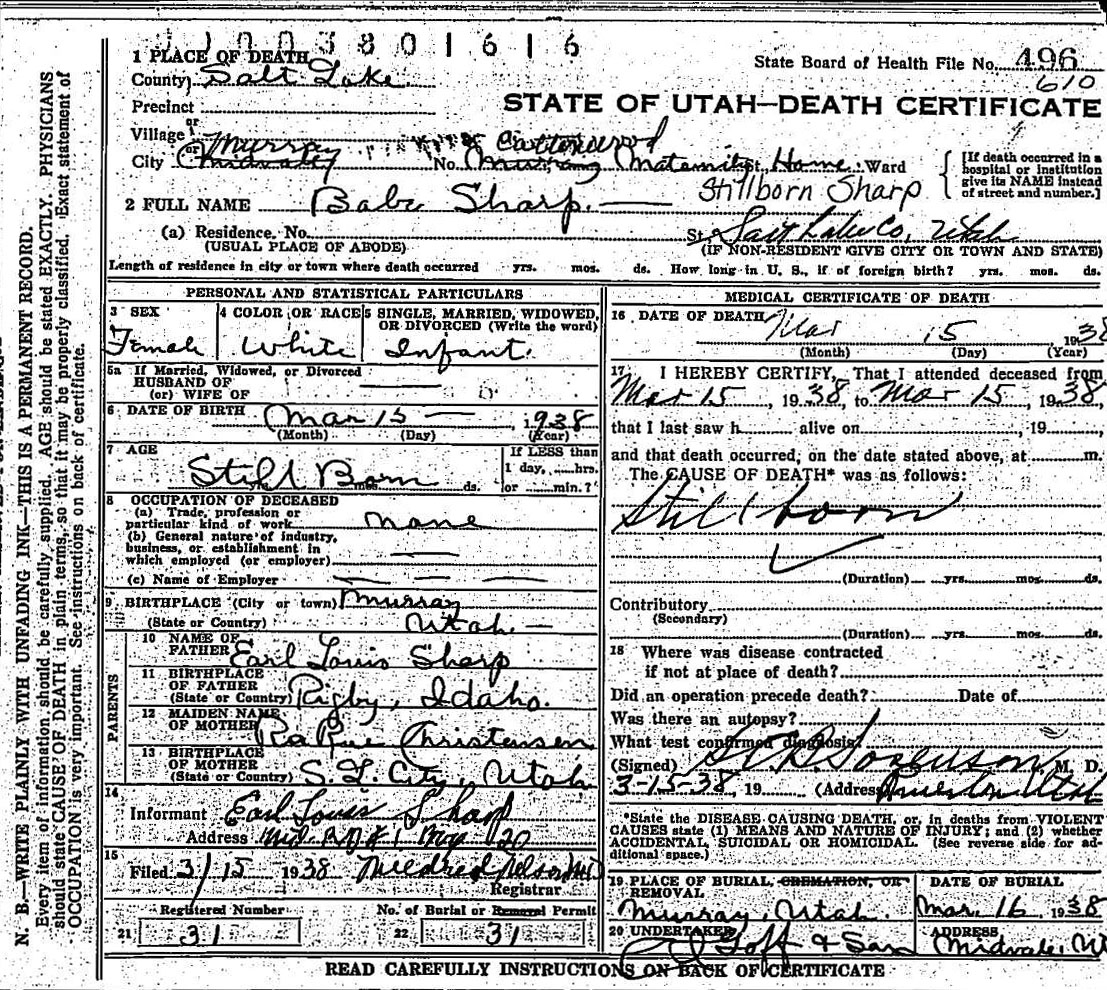 1003801616
1 PLACE OF DEATH
State Board of Health File No. 496
County Salt Lake
610
Precinct
STATE OF UTAH—DEATH CERTIFICATE
or
Village
Murray
Cottonwood
or
City Midvale No. Murray Maternity St. Home Ward
[If death occurred in a hospital or institution give its NAME instead of street and number.]
Stillborn Sharp
2 FULL NAME Babe Sharp
(a) Residence. No. St. Salt Lake Co, Utah
(USUAL PLACE OF ABODE) (IF NON-RESIDENT GIVE CITY OR TOWN AND STATE)
Length of residence in city or town where death occurred yrs. mos. ds. How long in U. S., if of foreign birth? yrs. mos. ds.
PERSONAL AND STATISTICAL PARTICULARS
3 SEX
Female
4 COLOR OR RACE
White
5 SINGLE, MARRIED, WIDOWED, OR DIVORCED (Write the word)
Infant.
5a If Married, Widowed, or Divorced
HUSBAND OF
(or) WIFE OF
6 DATE OF BIRTH Mar 15 — , 1938
(Month) (Day) (Year)
7 AGE
Still Born
mos. ds.
If LESS than
1 day, hrs.
or min.?
8 OCCUPATION OF DECEASED
(a) Trade, profession or
particular kind of work none
(b) General nature of industry,
business, or establishment in
which employed (or employer) —
(c) Name of Employer — — —
9 BIRTHPLACE (City or town) Murray
(State or Country) Utah. —
PARENTS
10 NAME OF
FATHER Earl Louis Sharp
11 BIRTHPLACE
OF FATHER
(State or Country) Rigby, Idaho.
12 MAIDEN NAME
OF MOTHER RaRue Christensen
13 BIRTHPLACE
OF MOTHER
(State or Country) S. L. City, Utah
14
Informant Earl Louis Sharp
Address
15
Filed 3/15 1938 Mildred Nelson MD
Registrar
Registered Number
21 31
No. of Burial or Removal Permit
22 31
MEDICAL CERTIFICATE OF DEATH
16 DATE OF DEATH Mar 15 1938
(Month) (Day) (Year)
17 I HEREBY CERTIFY, That I attended deceased from
Mar 15, 1938, to Mar 15, 1938,
that I last saw h alive on , 19
and that death occurred, on the date stated above, at m.
The CAUSE OF DEATH* was as follows:
Stillborn
(Duration) yrs. mos. ds.
Contributory
(Secondary)
(Duration) yrs. mos. ds.
18 Where was disease contracted
if not at place of death?
Did an operation precede death? Date of
Was there an autopsy?
What test confirmed diagnosis?
(Signed) Sorenson, M. D.
3-15-38, 19 (Address) Utah
*State the DISEASE CAUSING DEATH, or, in deaths from VIOLENT
CAUSES state (1) MEANS AND NATURE OF INJURY; and (2) whether
ACCIDENTAL, SUICIDAL OR HOMICIDAL. (See reverse side for ad-
ditional space.)
19 PLACE OF BURIAL, CREMATION, OR
REMOVAL
Murray, Utah.
DATE OF BURIAL
Mar. 16 1938
20 UNDERTAKER
Goff & Son
ADDRESS
Midvale, Ut
READ CAREFULLY INSTRUCTIONS ON BACK OF CERTIFICATE
N. B.—WRITE PLAINLY WITH UNFADING INK—THIS IS A PERMANENT RECORD.
Every item of information should be carefully supplied. AGE should be stated EXACTLY. PHYSICIANS
should state CAUSE OF DEATH in plain terms, so that it may be properly classified. Exact statement of
OCCUPATION is very important. See instructions on back of certificate.